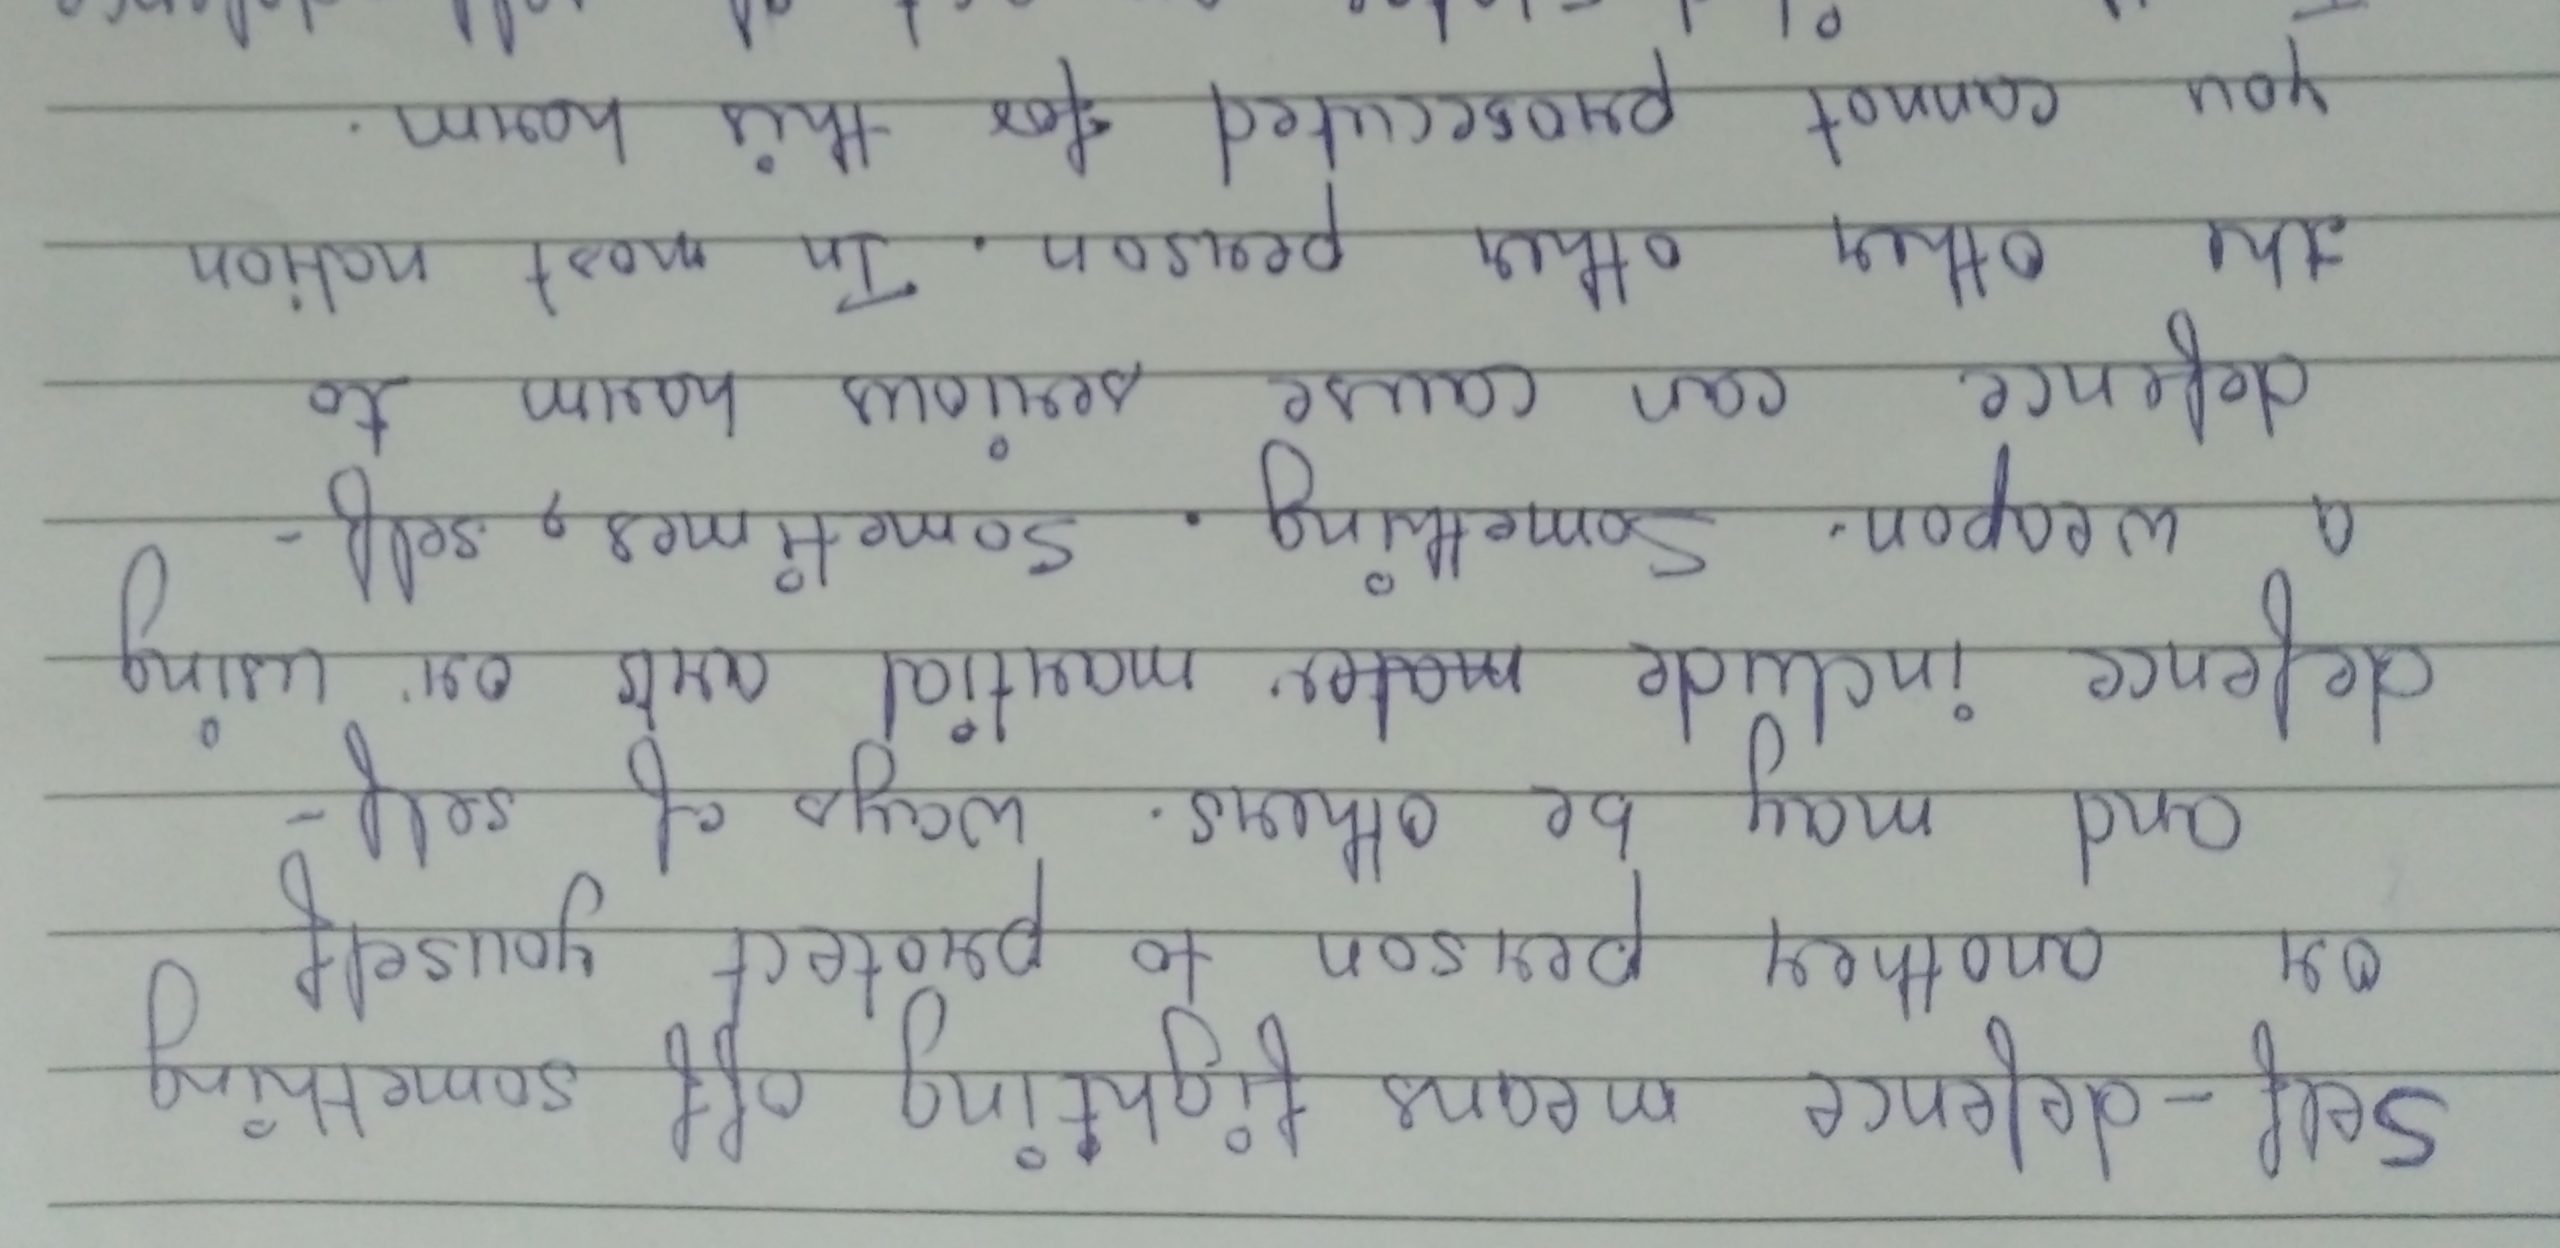 Self-defence means fighting off something
or another person to protect youself
and may be others. ways of self-
defence include martial arts or using
a weapon. Something. sometimes, self-
defence can cause serious harm to
the other other person. In most nation
you cannot prosecuted for this harm.